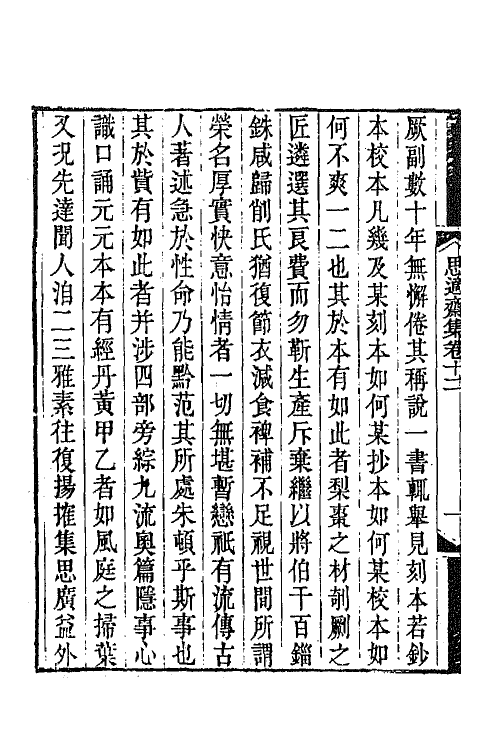 思適齋集卷十二
厥副數十年無懈倦其稱說一書輒舉見刻本若鈔
本校本凡幾及某刻本如何某抄本如何某校本如
何不爽一二也其於本有如此者梨棗之材剞劂之
匠遴選其良費而勿靳生產斥棄繼以將伯千百錙
銖咸歸削氏猶復節衣減食裨補不足視世間所謂
榮名厚實快意怡情者一切無堪暫戀祇有流傳古
人著述急於性命乃能黔范其所處朱頓乎斯事也
其於貲有如此者并涉四部旁綜九流奧篇隱事心
識口誦元元本本有經丹黃甲乙者如風庭之掃葉
又況先達聞人洎二三雅素往復揚搉集思廣益外